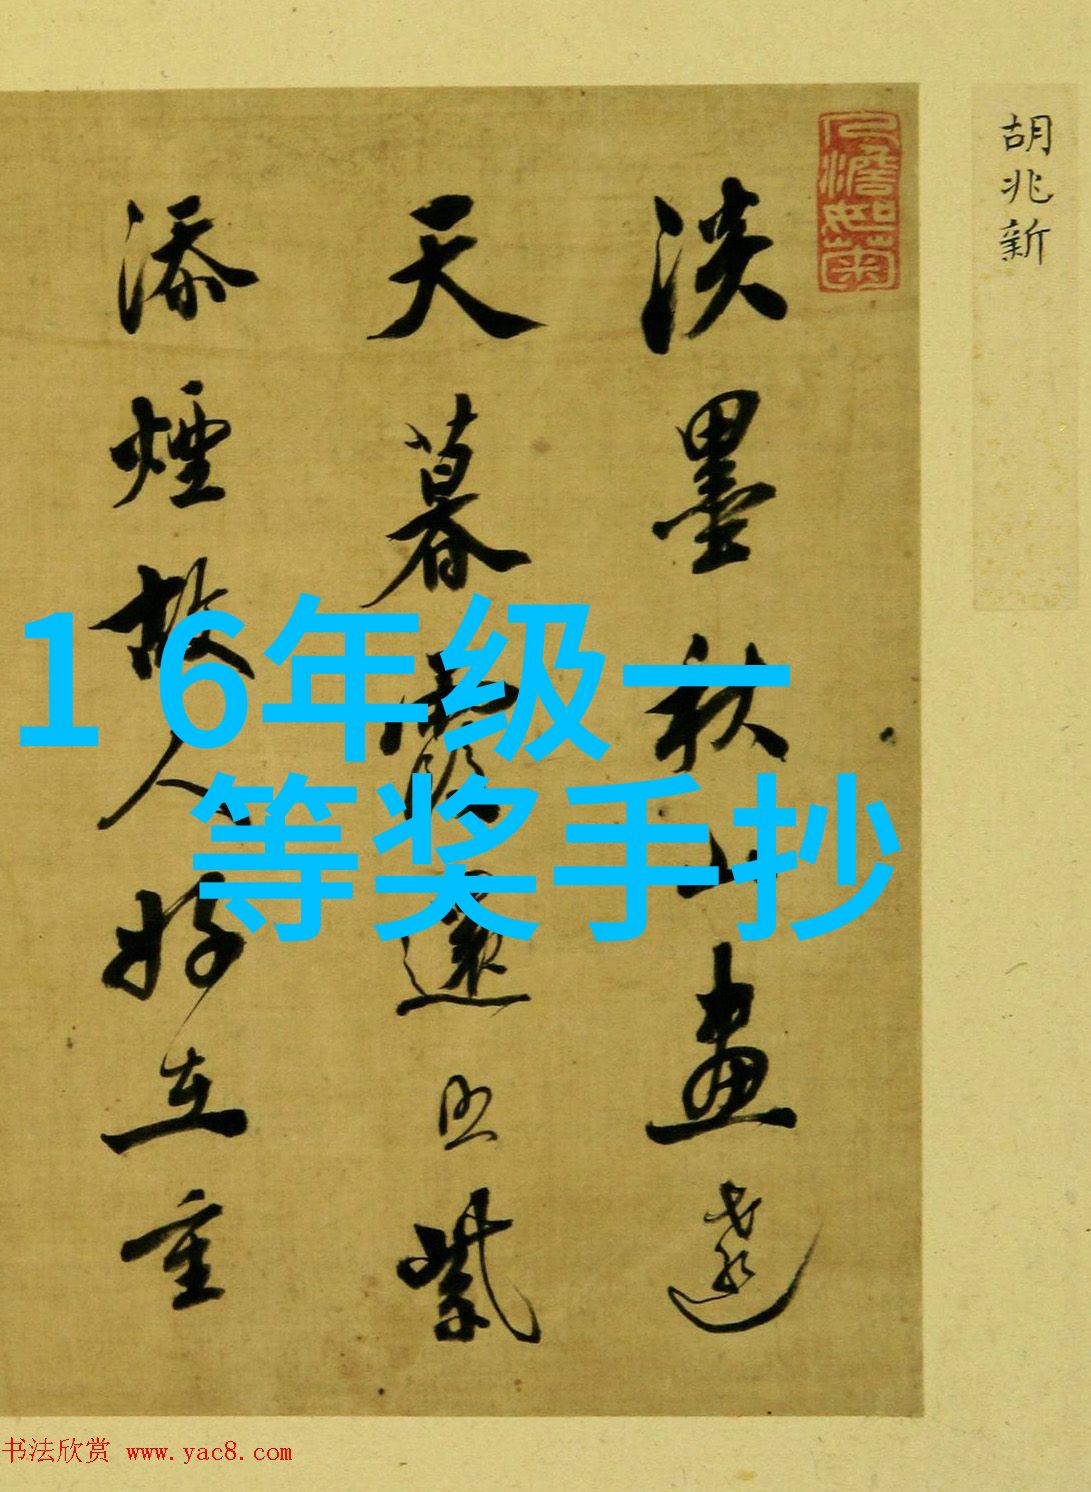 胡兆新
人澹如菊
淡墨秋山畫遠
天暮霞還照紫
添煙故人好在重
1 6年级一
等奖手抄
书法欣赏 www.yac8.com